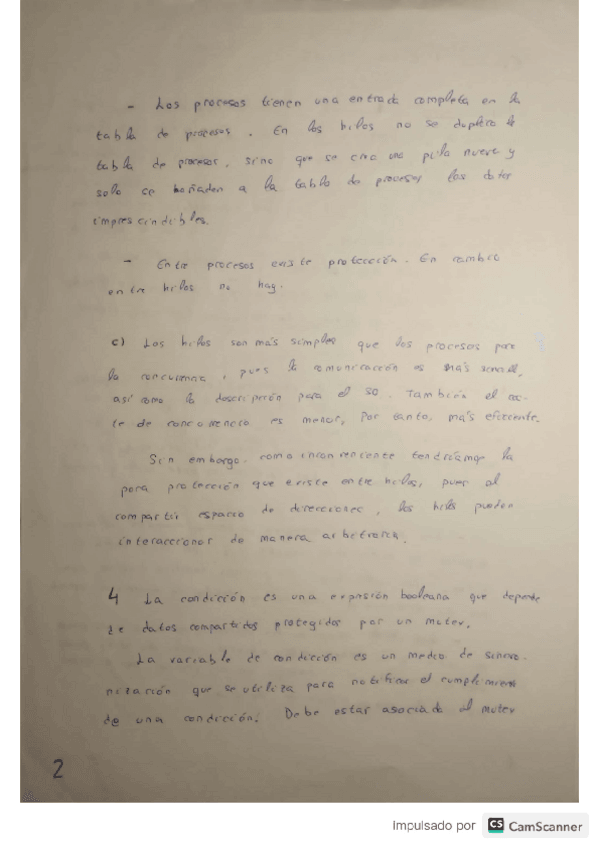 - Los procesos tienen una entrada completa en la
tabla de procesos. En los hilos no se duplica la
tabla de procesos, sino que se crea una pila nueva y
solo se bañaden a la tabla de procesos los datos
impres cindibles.
- Entre procesos existe protección. En cambio
entre hilos no hay.
c) Los hilos son más simples que los procesos para
la concurrencia, pues la comunicación es más sencill,
así como la descripción para el SO. También el cos-
te de concurrencia es menor, por tanto, más eficiente.
Sin embargo. como inconveniente tendríamos la
poca protección que existe entre hilos, pues al
compartir espacio de direcciones, los hilos pueden
interaccionar de manera arbitraria.
4 La condicción es una expresión booleana que depende
de datos compartidos protegidos por un mutex.
La variable de condicción es un medio de sincro-
nización que se utiliza para notificar el cumplimiento
de una condicción. Debe estar asociada al mutex
2
Impulsado por CS CamScanner